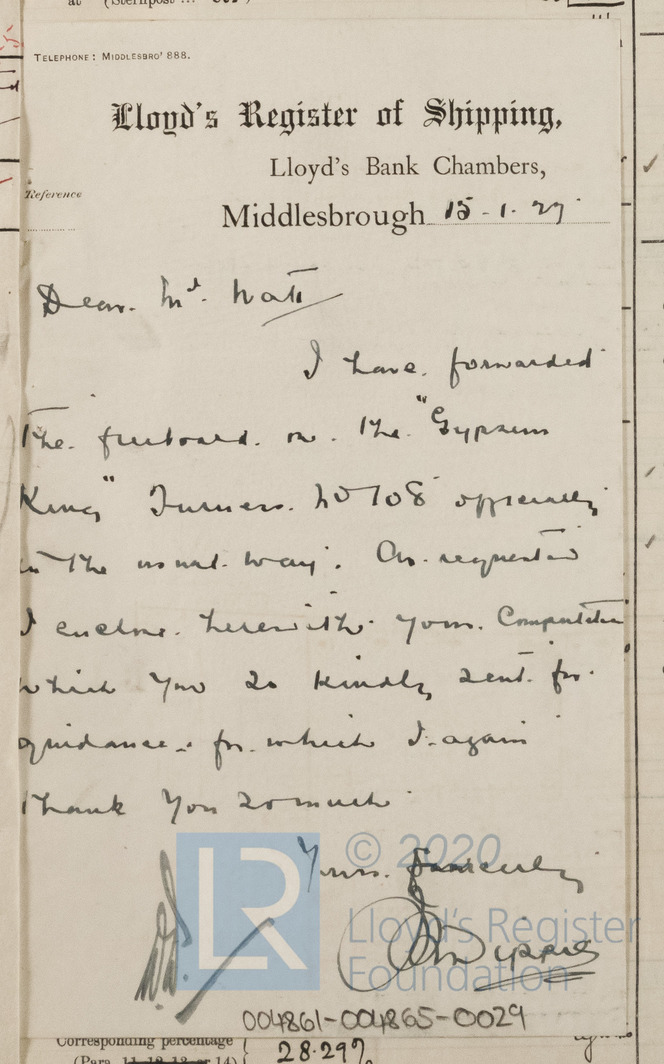 at (Sternpost ...
TELEPHONE: MIDDLESBRO' 888.
Lloyd's Register of Shipping,
Lloyd's Bank Chambers,
Reference
Middlesbrough 15-1-27
Dear Mr. Watt
I have forwarded
the freeboard on the "Gypsum
King" Turners No 108 officially
in the usual way. As requested
I enclose herewith your Computation
which you so kindly sent for
guidance & for which I again
thank you so much
Yours Sincerely
© 2020
LR
Lloyd's Register
Foundation
004861-004865-0029
Corresponding percentage
(Para. 11 12 13 or 14)
28.29%